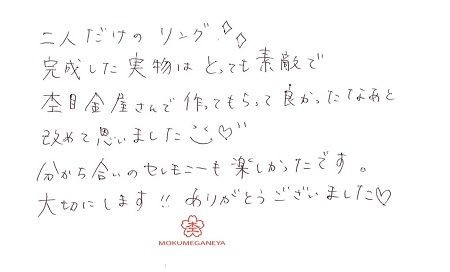 二人だけのリング✧✧
完成した実物はとっても素敵で
杢目金屋さんで作ってもらって良かったなあと
改めて思いました☺♡"
分かち合いのセレモニーも楽しかったです。
大切にします!! ありがとうございました♡
MOKUMEGANEYA